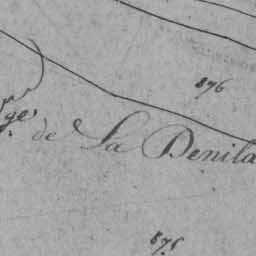 876
de La Denila
876